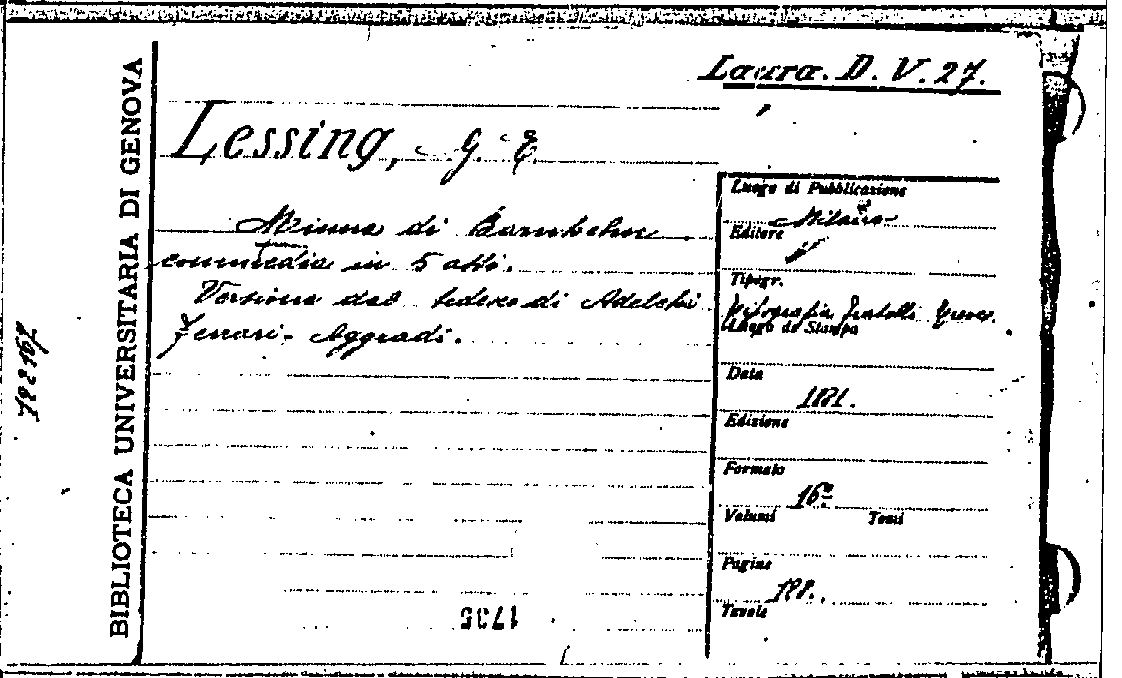 Laura. D. V. 27.
Lessing, G. E.
Minna di Barnhelm
commedia in 5 atti.
Versione dal tedesco di Adelchi
Ferrari-Aggradi.
Luogo di Pubblicazione
Milano
Editore
Tipogr.
Tipografia Fratelli
Luogo di Stampa
Data
Edizione
Formato
16º
Volumi Tomi
Pagine
Tavole
1735
BIBLIOTECA UNIVERSITARIA DI GENOVA